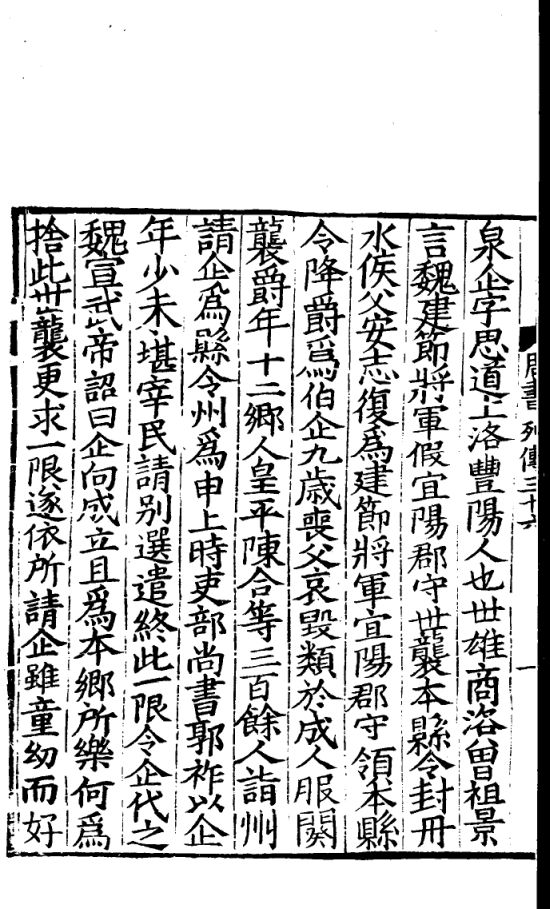 周書列傳三十六 一
泉企字思道上洛豐陽人也世雄商洛曾祖景
言魏建節將軍假宜陽郡守世襲本縣令封丹
水侯父安志復爲建節將軍宜陽郡守領本縣
令降爵爲伯企九歲喪父哀毀類於成人服闋
襲爵年十二鄉人皇平陳合等三百餘人詣州
請企爲縣令州爲申上時吏部尚書郭祚以企
年少未堪宰民請別選遣終此一限令企代之
魏宣武帝詔曰企向成立且爲本鄉所樂何爲
捨此世襲更求一限遂依所請企雖童幼而好